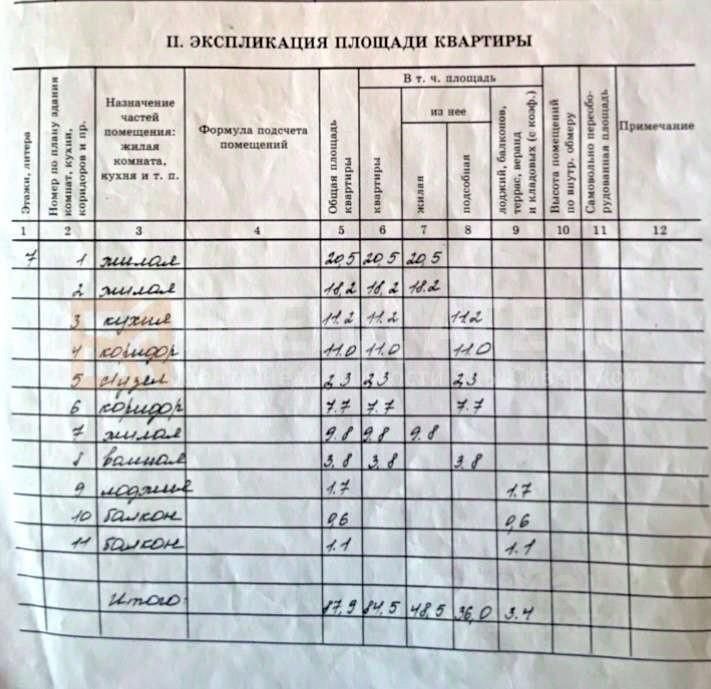 II. ЭКСПЛИКАЦИЯ ПЛОЩАДИ КВАРТИРЫ
Этажи, литера
Номер по плану здания комнат, кухни, коридоров и пр.
Назначение частей помещения: жилая комната, кухня и т. п.
Формула подсчета помещений
Общая площадь квартиры
В т. ч. площадь
квартиры
из нее
жилая
подсобная
лоджий, балконов, террас, веранд и кладовых (с коэф.)
Высота помещений по внутр. обмеру
Самовольно переоборудованная площадь
Примечание
1 2 3 4 5 6 7 8 9 10 11 12
7 1 жилая 20,5 20,5 20,5
2 жилая 18,2 18,2 18.2
3 кухня 11.2 11.2 11.2
4 коридор 11.0 11.0 11.0
5 с/узел 2.3 2.3 2.3
6 коридор 7.7 7.7 7.7
7 жилая 9.8 9.8 9.8
8 ванная 3.8 3.8 3.8
9 лоджия 1.7 1.7
10 балкон 0,6 0,6
11 балкон 1.1 1.1
Итого: 87,9 84,5 48,5 36,0 3.4